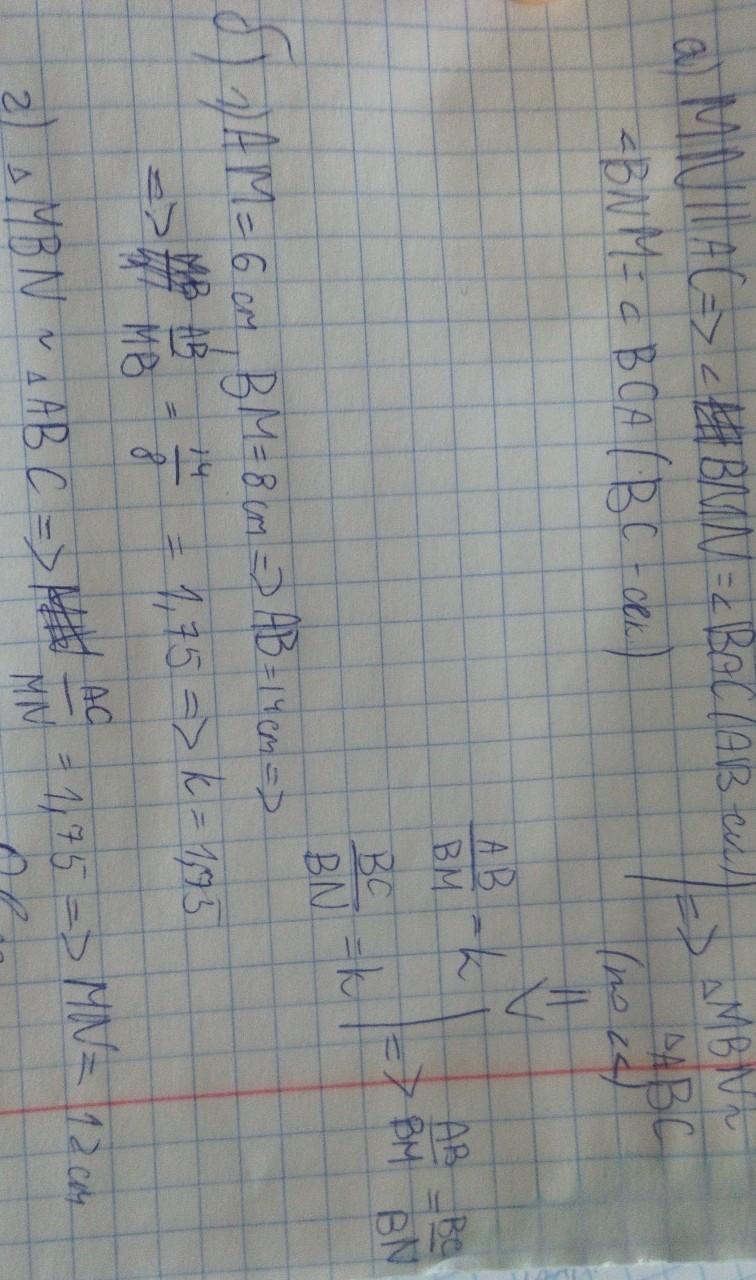 а) MN || AC => ∠ BMN = ∠ BAC (AB - сек.) | => △MBN ~
∠BNM = ∠BCA (BC - сек.) | △ABC
(по 2∠)
⇓
AB/BM = k | => AB/BM = BC/BN
BC/BN = k |
б) 1) AM = 6 cm, BM = 8 cm => AB = 14 cm =>
=> AB/MB = 14/8 = 1,75 => k = 1,75
г) △MBN ~ △ABC => AC/MN = 1,75 => MN = 12 cm